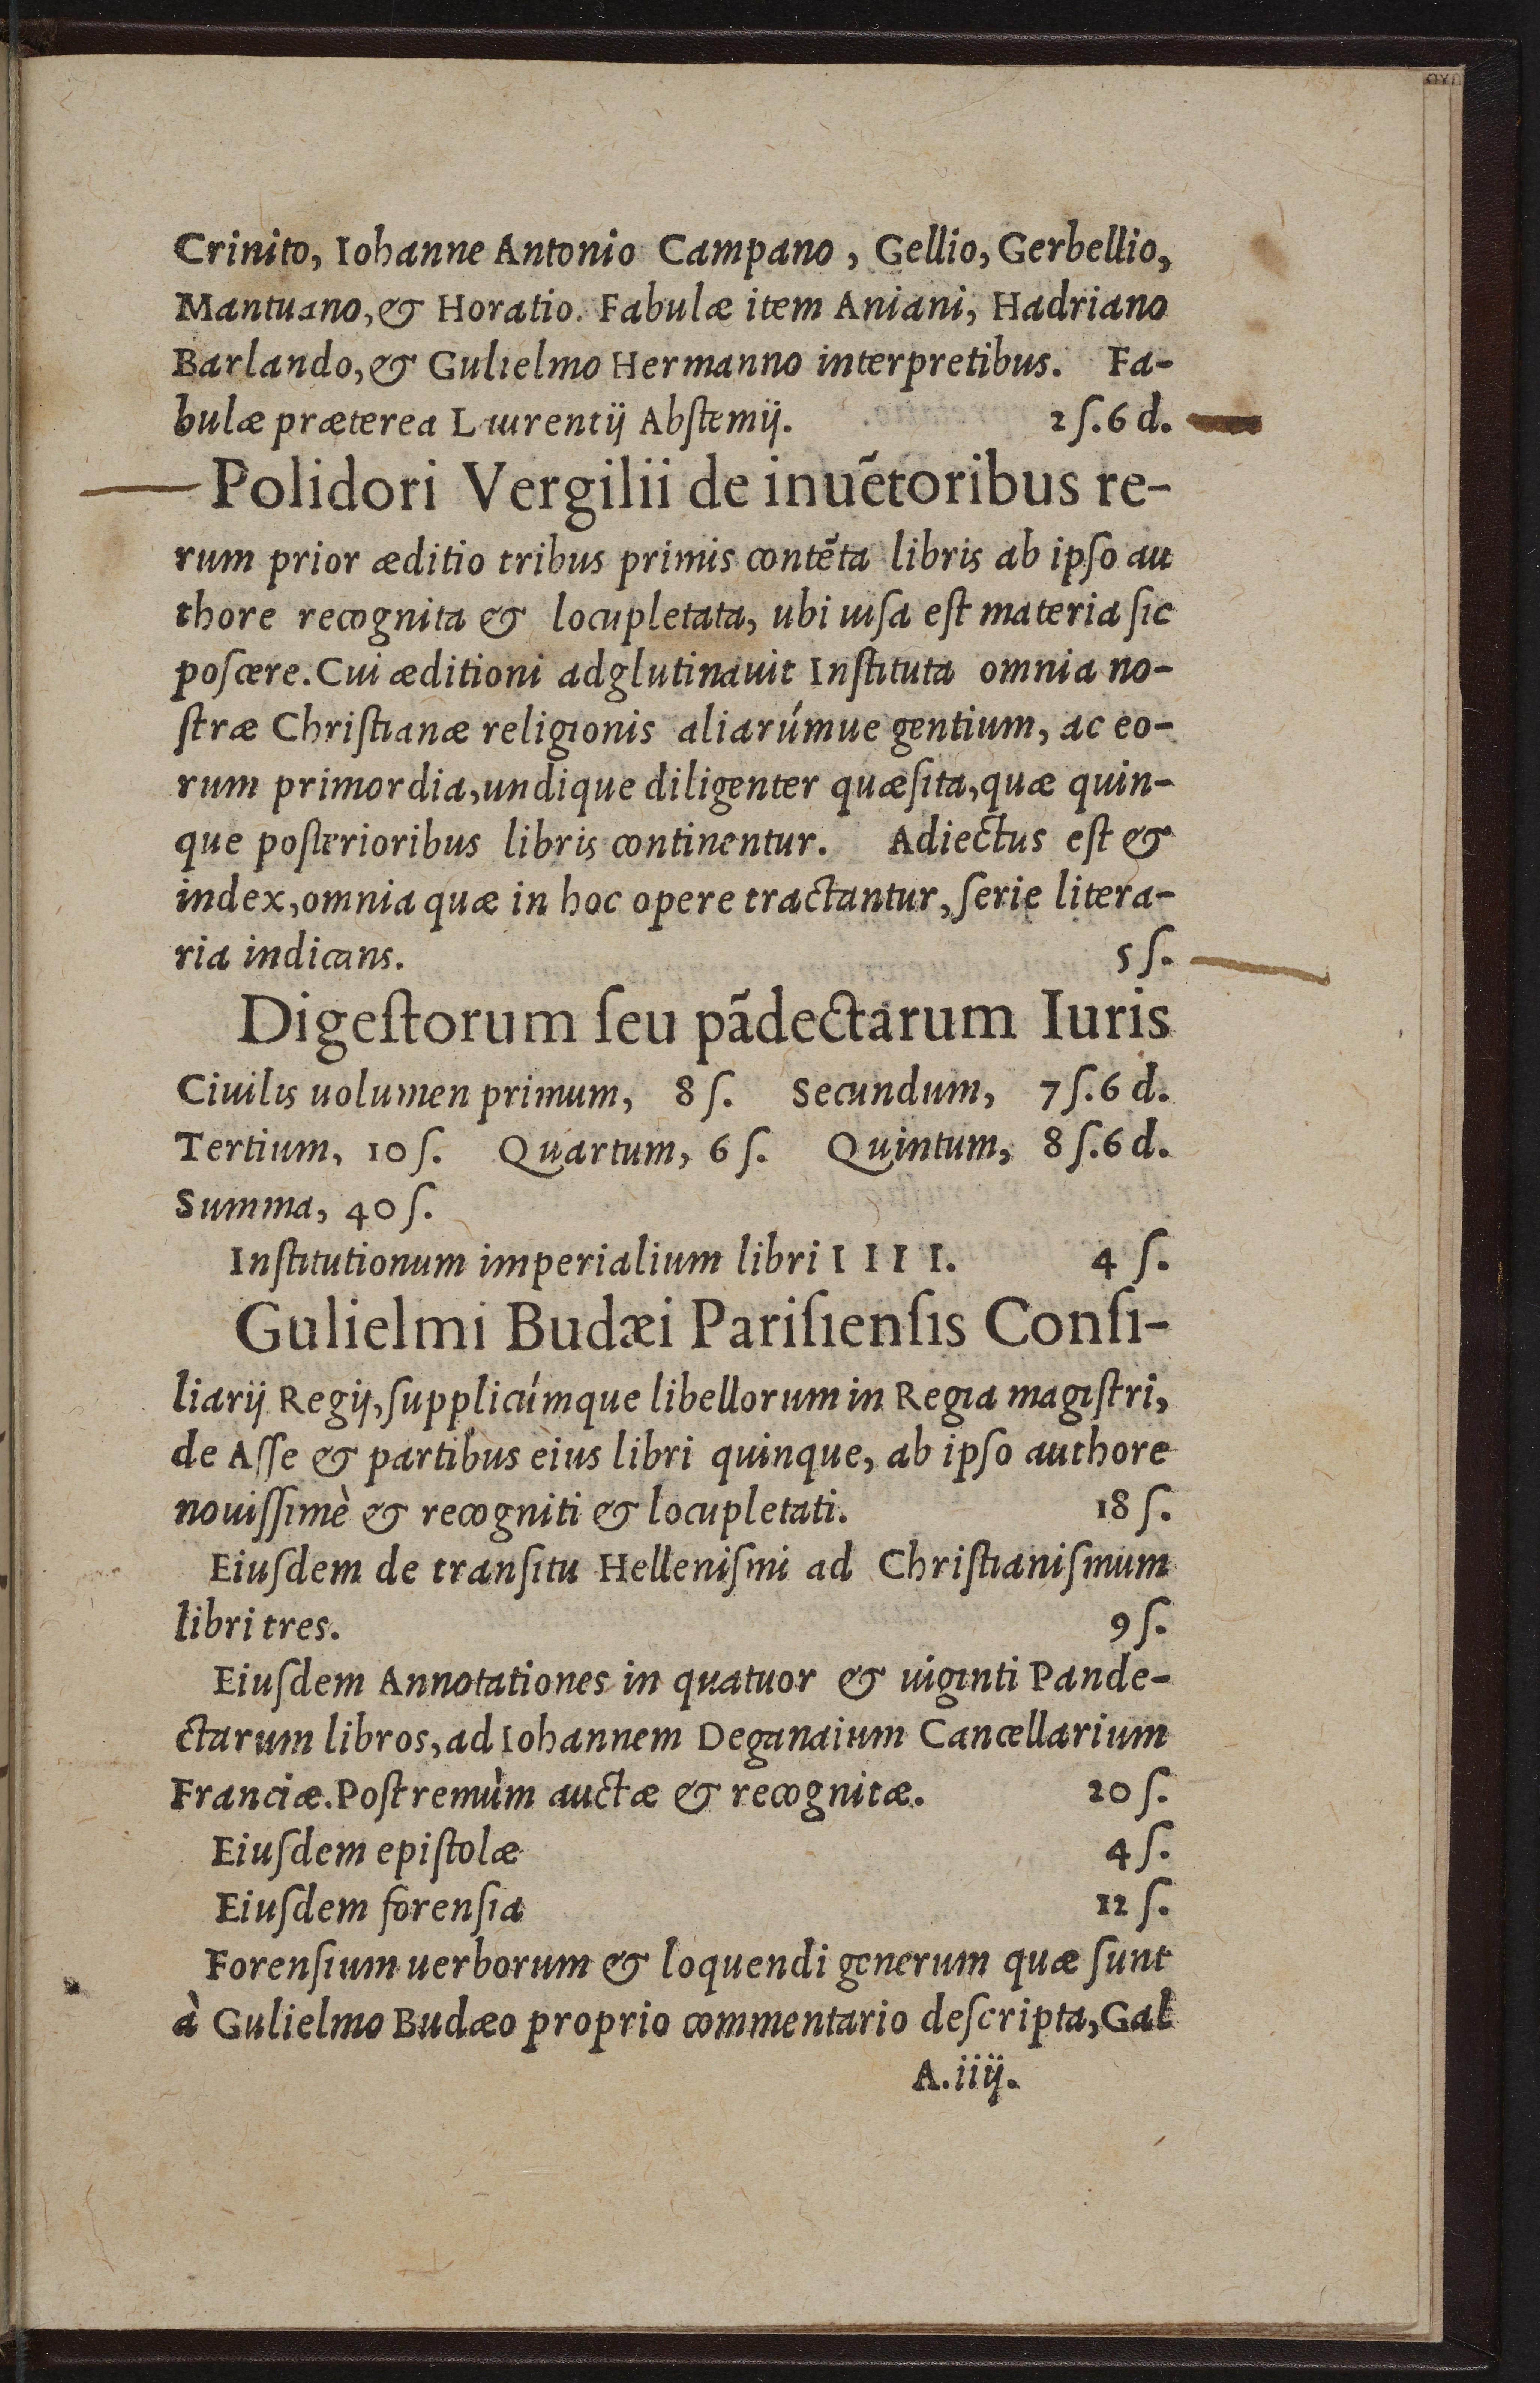 Crinito, Iohanne Antonio Campano, Gellio, Gerbellio,
Mantuano, & Horatio. Fabulæ item Aniani, Hadriano
Barlando, & Gulielmo Hermanno interpretibus. Fa-
bulæ præterea Laurentij Abſtemij. 2 ſ. 6 d.
Polidori Vergilii de inuẽtoribus re-
rum prior æditio tribus primis contẽta libris ab ipſo au
thore recognita & locupletata, ubi uiſa eſt materia ſic
poſcere. Cui æditioni adglutinauit Inſtituta omnia no-
ſtræ Chriſtianæ religionis aliarúmue gentium, ac eo-
rum primordia, undique diligenter quæſita, quæ quin-
que poſterioribus libris continentur. Adiectus eſt &
index, omnia quæ in hoc opere tractantur, ſerie litera-
ria indicans. 5 ſ.
Digeſtorum ſeu pãdectarum Iuris
Ciuilis uolumen primum, 8 ſ. Secundum, 7 ſ. 6 d.
Tertium, 10 ſ. Quartum, 6 ſ. Quintum, 8 ſ. 6 d.
Summa, 40 ſ.
Inſtitutionum imperialium libri I I I I. 4 ſ.
Gulielmi Budæi Pariſienſis Conſi-
liarij Regij, ſupplicúmque libellorum in Regia magiſtri,
de Aſſe & partibus eius libri quinque, ab ipſo authore
nouiſſimè & recogniti & locupletati. 18 ſ.
Eiuſdem de tranſitu Helleniſmi ad Chriſtianiſmum
libri tres. 9 ſ.
Eiuſdem Annotationes in quatuor & uiginti Pande-
ctarum libros, ad Iohannem Deganaium Cancellarium
Franciæ. Poſtremùm auctæ & recognitæ. 20 ſ.
Eiuſdem epiſtolæ 4 ſ.
Eiuſdem forenſia 12 ſ.
Forenſium uerborum & loquendi generum quæ ſunt
à Gulielmo Budæo proprio commentario deſcripta, Gal
A.iiij.